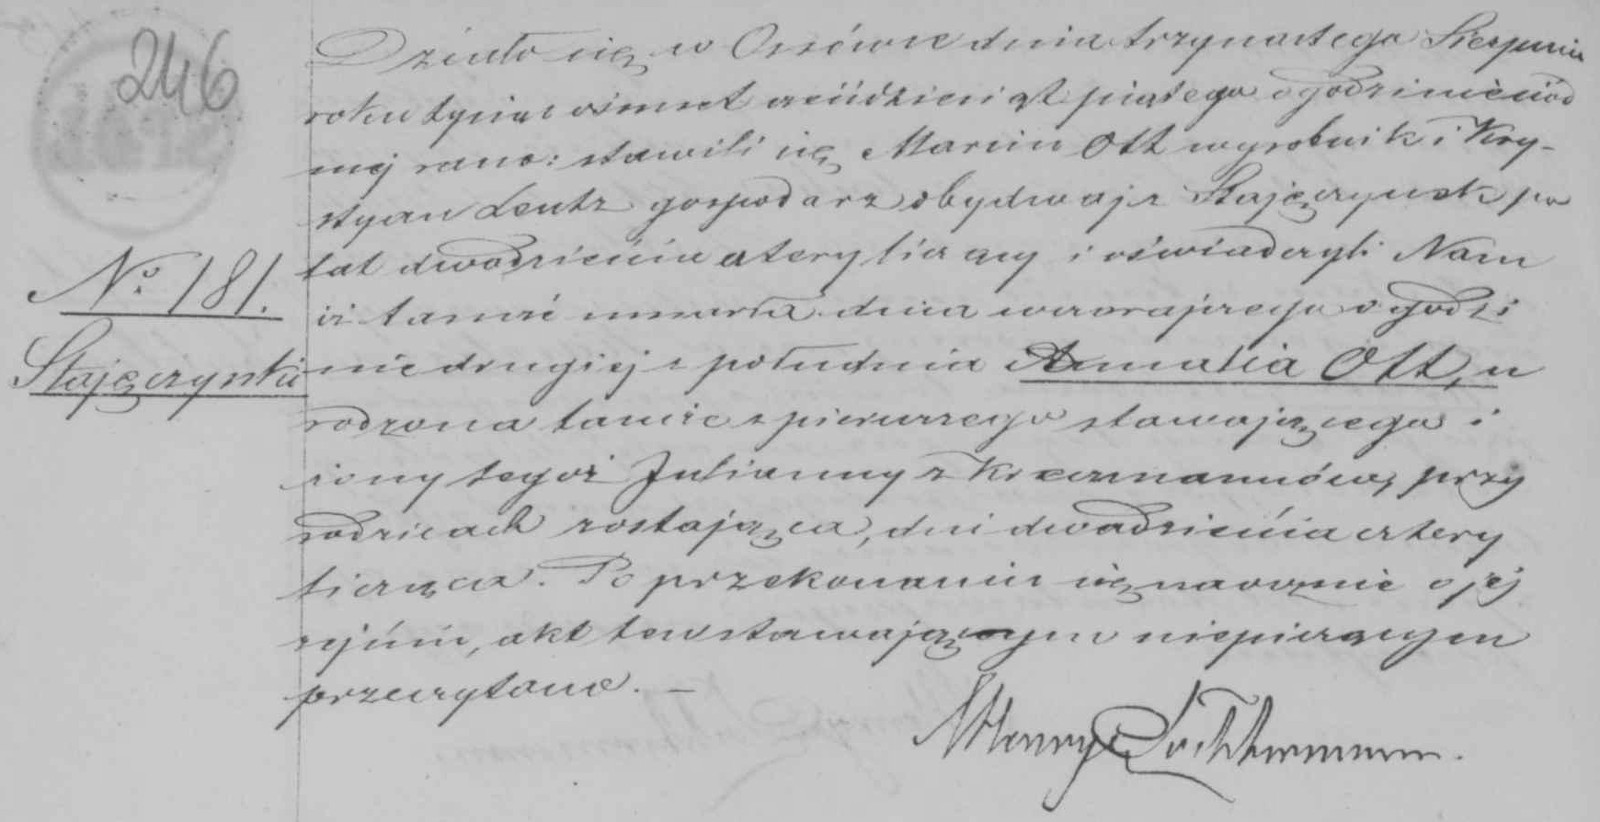 246
Działo się w Ossówce dnia trzynastego Sierpnia
roku tysiąc ośmset sześćdziesiąt piątego o godzinie siód
mej rano: stawili się Marcin Ott wyrobnik i Kry-
styan Lentz gospodarz obydwaj z Stajęczynek po
lat dwadzieścia cztery liczący i oświadczyli Nam
No. 181.
iż tamże umarła dnia wczorajszego o godzi
Stajęczynki
nie drugiej z południa Amalia Ott, u
rodzona tamże z pierwszego stawającego i
żony tegoż Julianny z przy
rodzicach zostająca, dni dwadzieścia cztery
licząca. Po przekonaniu się naocznie o jej
zejściu, akt ten stawającym niepiszącym
przeczytano. —